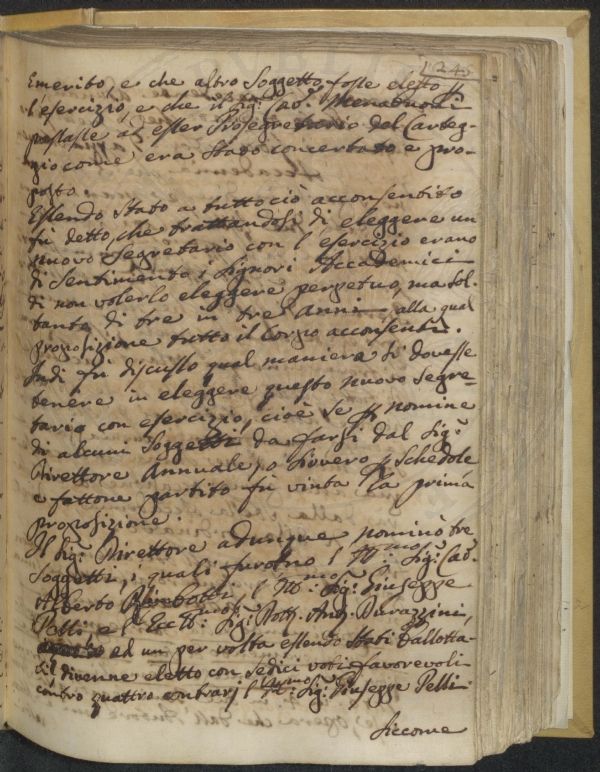 124
Emerito, e che altro Soggetto fosse eletto p
l'esercizio, e che il Sig: Cav:
passasse ad esser Prosegretario del Carteg-
gio come era stato concertato e pro-
posto.
Essendo stato a tutto ciò acconsentito
fù detto, che trattandosi di eleggere un
nuovo Segretario con l'esercizio erano
di sentimento i Signori Accademici
di non volerlo eleggere perpetuo, ma sol-
tanto di tre in tre anni, alla qual
proposizione tutto il Corpo acconsentì.
Indi fù discusso qual maniera si dovesse
tenere in eleggere questo nuovo Segre-
tario con esercizio, cioè se p nomine
di alcuni Soggetti da farsi dal Sig:
Direttore Annuale, o sivvero p schedole
e fattone partito fù vinta la prima
proposizione.
Il Sig: Direttore adunque nominò tre
Soggetti, i quali furono l'Ill:mo Sig: Cav:
Alberto Rimbotti, l'Ill:mo Sig: Giuseppe
Pelli, e l'Ecc:mo Sig: Dott: Ant: Durazzini,
ed un per volta essendo stati ballotta-
ti divenne eletto con sedici voti favorevoli
contro quattro contrarj l'Ill:mo Sig: Giuseppe Pelli
Siccome